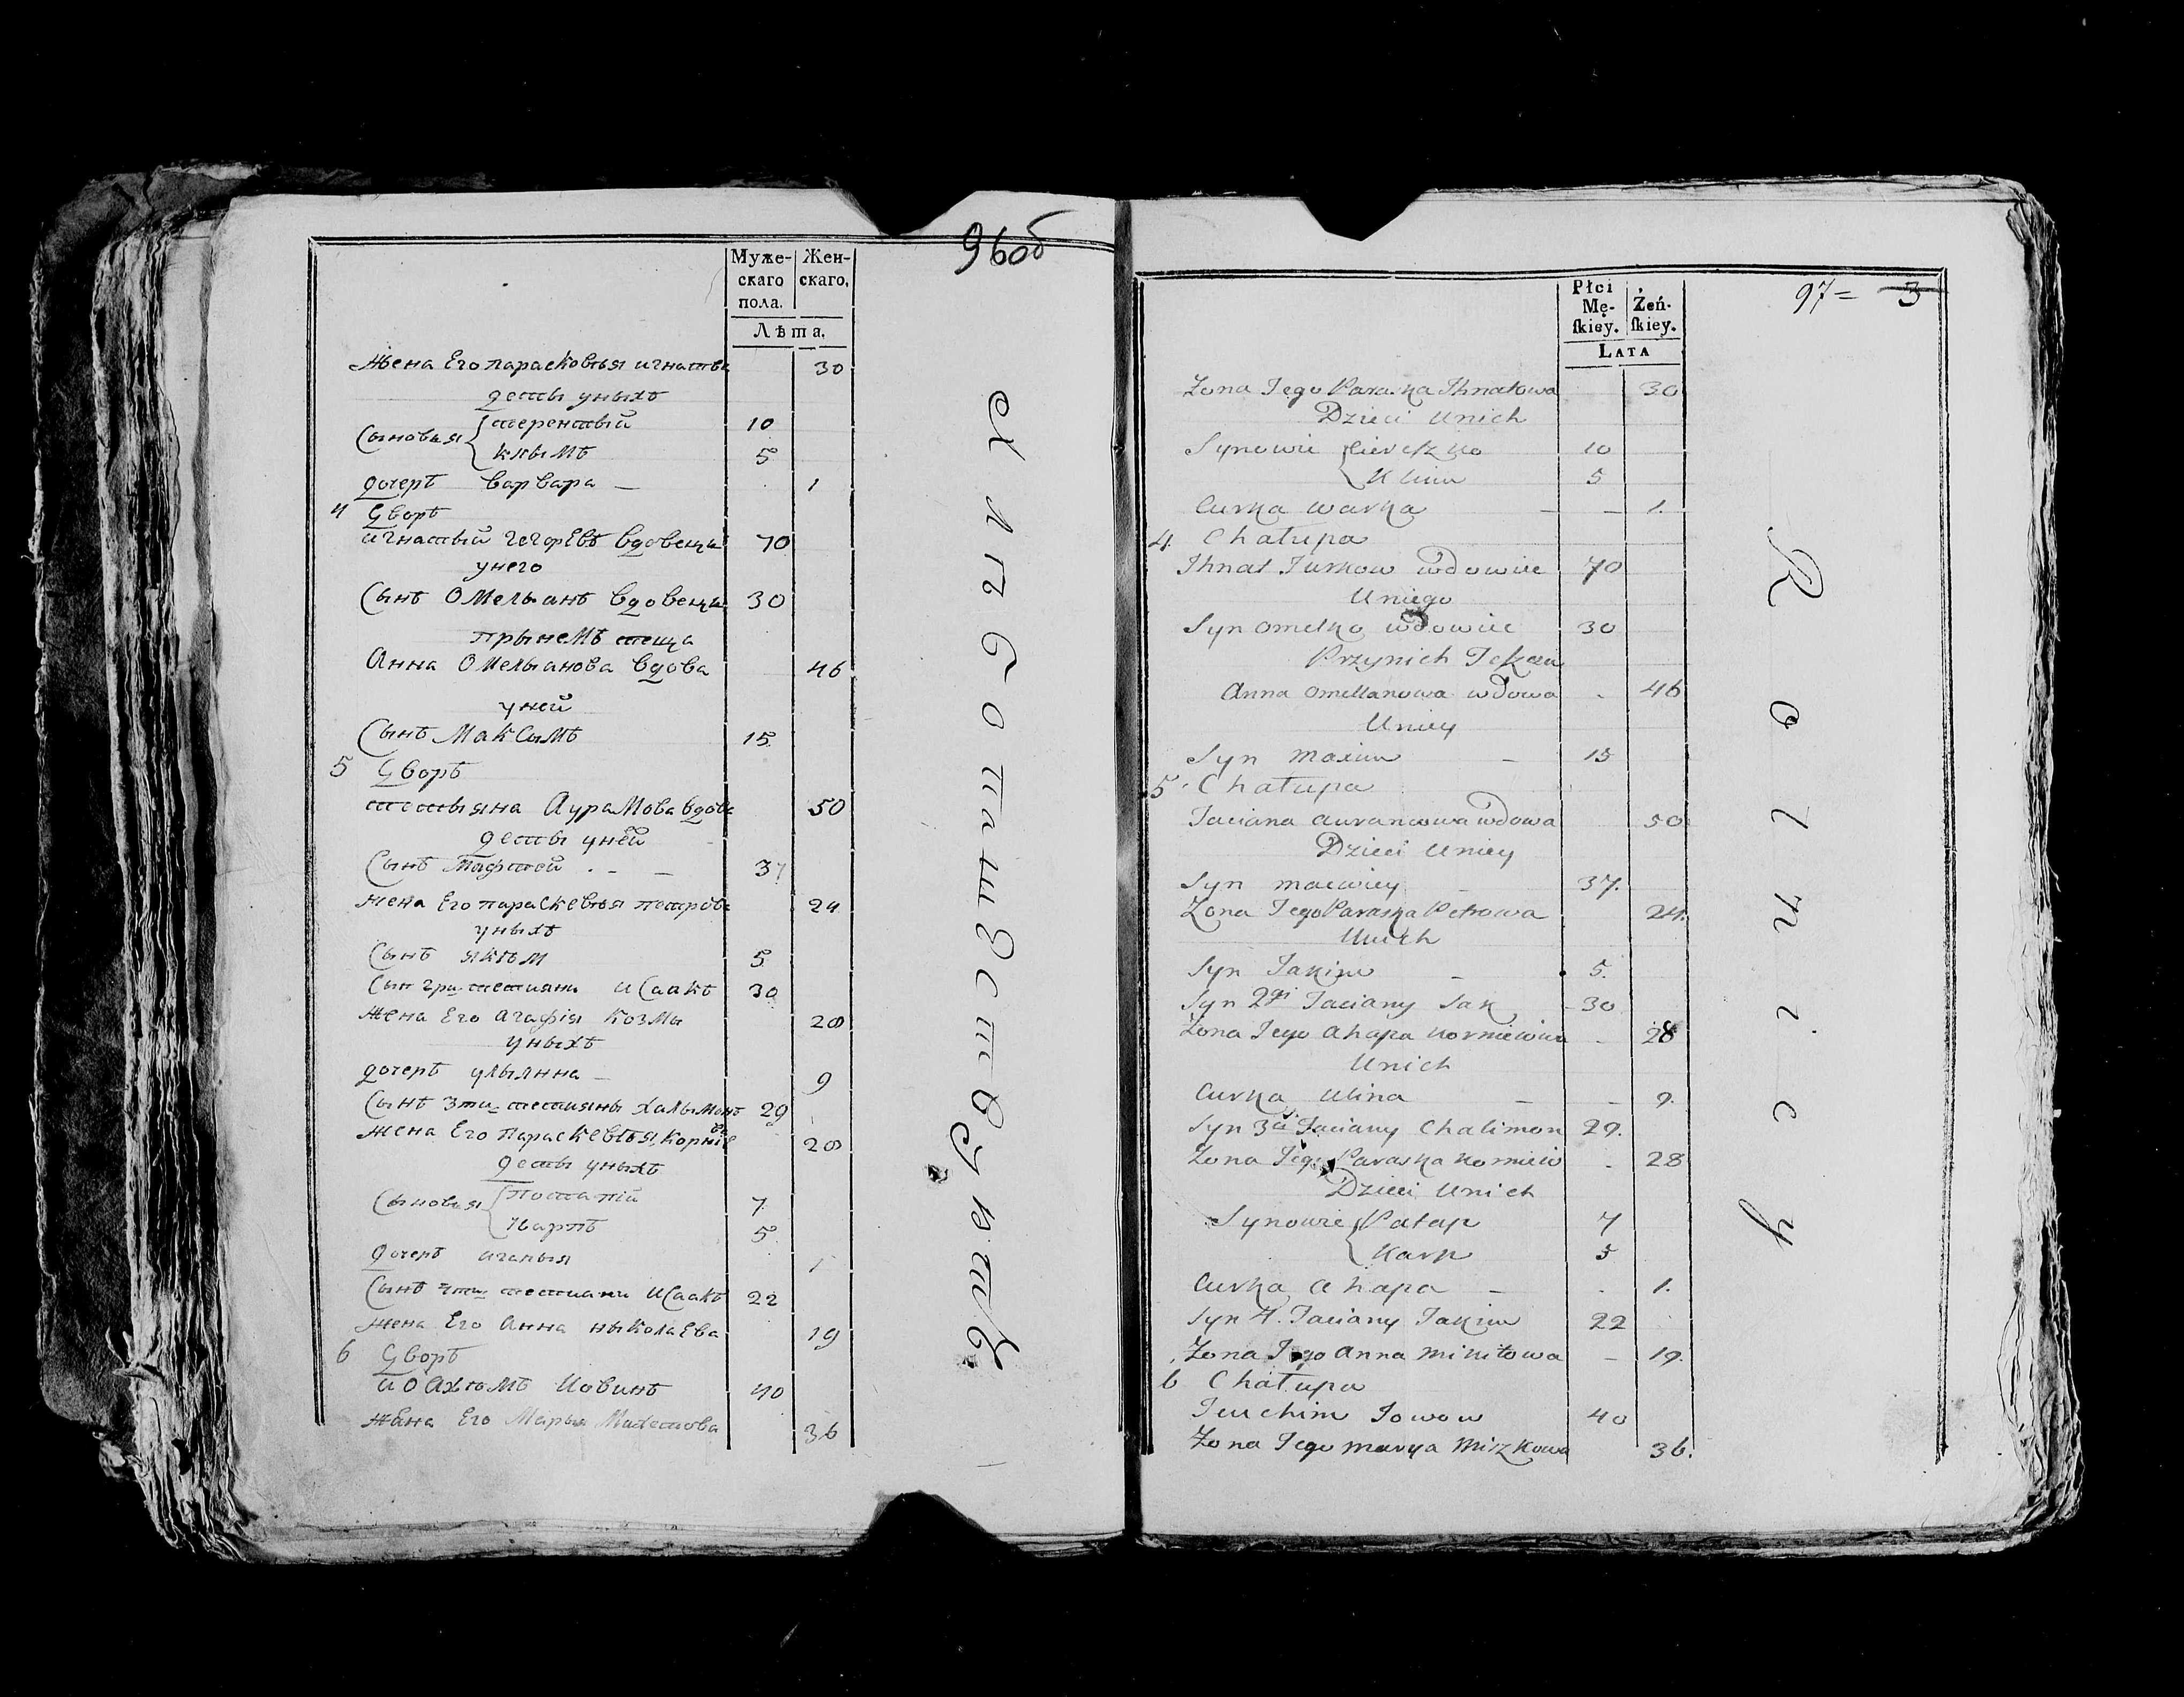 96об
Муже-
скаго
пола.
Жен-
скаго.
Лѣта.
жена Его парасковья игнатва 30
дети уныхъ
Сыновья терентый 10
клымъ 5
дочеръ варвара — 1
4 Дворъ
игнатый вдовецъ 70
унего
Сынъ Омельянъ вдовецъ 30
прынемъ теща
Анна Омельянова вдова 46
уней
Сынъ Максымъ 15
5 Дворъ
тетьяна Аурамова вдова 50
дети уней
Сынъ 37
жена Его параскевья петрова 24
уныхъ
Сынъ якым 5
Сын тетияни Исаакъ 30
жена Его агафiя Козмы 28
уныхъ
дочеръ улыянна — 9
Сынъ 3ти тетияны халымонъ 29
жена Его параскевья корнiева 28
дети уныхъ
Сыновья потапiй 7
карпъ 5
дочеръ агапыя 1
Сынъ 4ти тетиани Исаакъ 22
жена Его Анна ныколаЕва 19
6 Дворъ
иоахымъ Иовинъ 40
жена Его Марыя 36
97= 3
Płci
Mę-
ſkiey.
Żeń-
ſkiey.
LATA
Zona Jego Paraska Ihnatowa 30
Dzieci Unich
Synowie Ciereszko 10
Klim 5
Curka Warka — — 1.
4. Chałupa
Ihnat Jurkow wdowiec 70
Uniego
Syn Omelko wdowiec 30
Przynich Teszcza
Anna Omellanowa wdowa 46
Uniey
Syn Maxim — 15
5. Chałupa
Taciana Auramowa wdowa 50
Dzieci Uniey
Syn Macwiey — 37.
Zona Jego Paraska Petrowa 24.
Unich
Syn Jakim — 5.
Syn 2gi Taciany Sak 30
Zona Jego Ahapa Korniewna 28
Unich
Curka Ulina — — 9.
Syn 3ci Taciany Chalimon 29.
Zona Jego Paraska Korniew 28
Dzieci Unich
Synowie Patap 7
Karp 5
Curka Ahapa — 1.
Syn 4. Taciany Jakim 22
Zona Jego Anna Mikitowa — 19.
6 Chałupa
Jeuchim Jowow 40
Zona Jego Marya Miszkowa 36.
Rolnicy